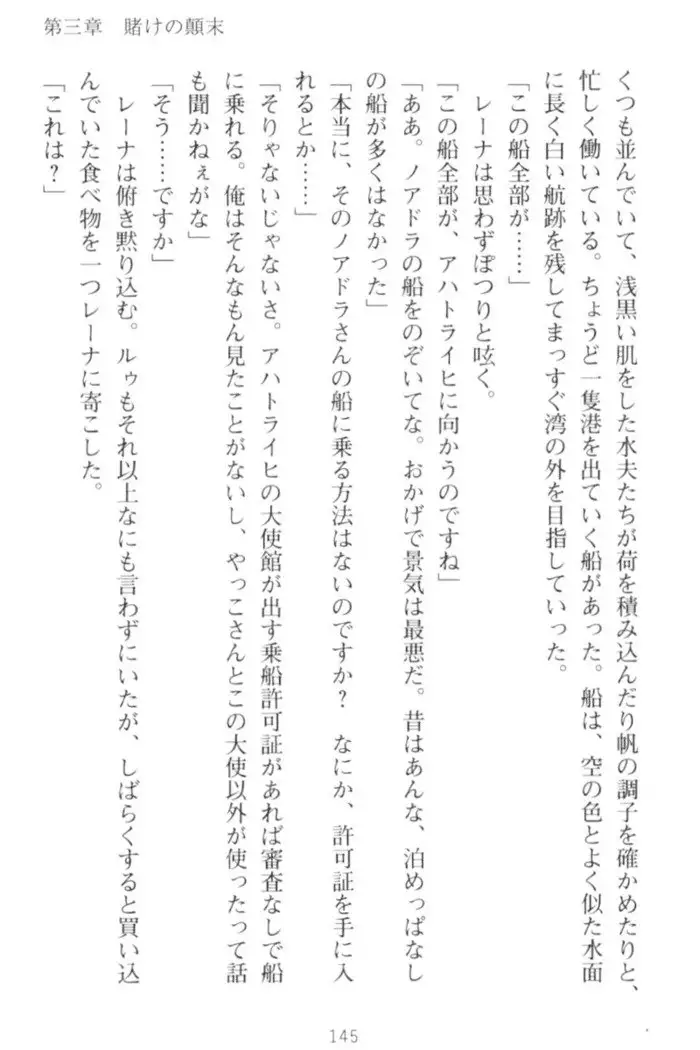 第三章　賭けの顛末
くつも並んでいて、浅黒い肌をした水夫たちが荷を積み込んだり帆の調子を確かめたりと、
忙しく働いている。ちょうど一隻港を出ていく船があった。船は、空の色とよく似た水面
に長く白い航跡を残してまっすぐ湾の外を目指していった。
「この船全部が……」
　レーナは思わずぽつりと呟く。
「この船全部が、アハトライヒに向かうのですね」
「ああ。ノアドラの船をのぞいてな。おかげで景気は最悪だ。昔はあんな、泊めっぱなし
の船が多くはなかった」
「本当に、そのノアドラさんの船に乗る方法はないのですか？　なにか、許可証を手に入
れるとか……」
「そりゃないじゃないさ。アハトライヒの大使館が出す乗船許可証があれば審査なしで船
に乗れる。俺はそんなもん見たことがないし、やっこさんとこの大使以外が使ったって話
も聞かねぇがな」
「そう……ですか」
　レーナは俯き黙り込む。ルゥもそれ以上なにも言わずにいたが、しばらくすると買い込
んでいた食べ物を一つレーナに寄こした。
「これは？」
145